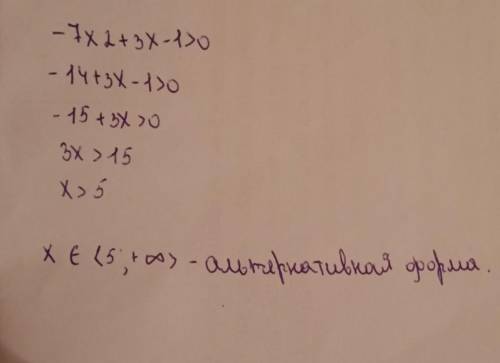 -7x2+3x-1>0
-14+3x-1>0
-15+3x>0
3x>15
x>5
x ∈ <5;+∞> - альтернативная форма.